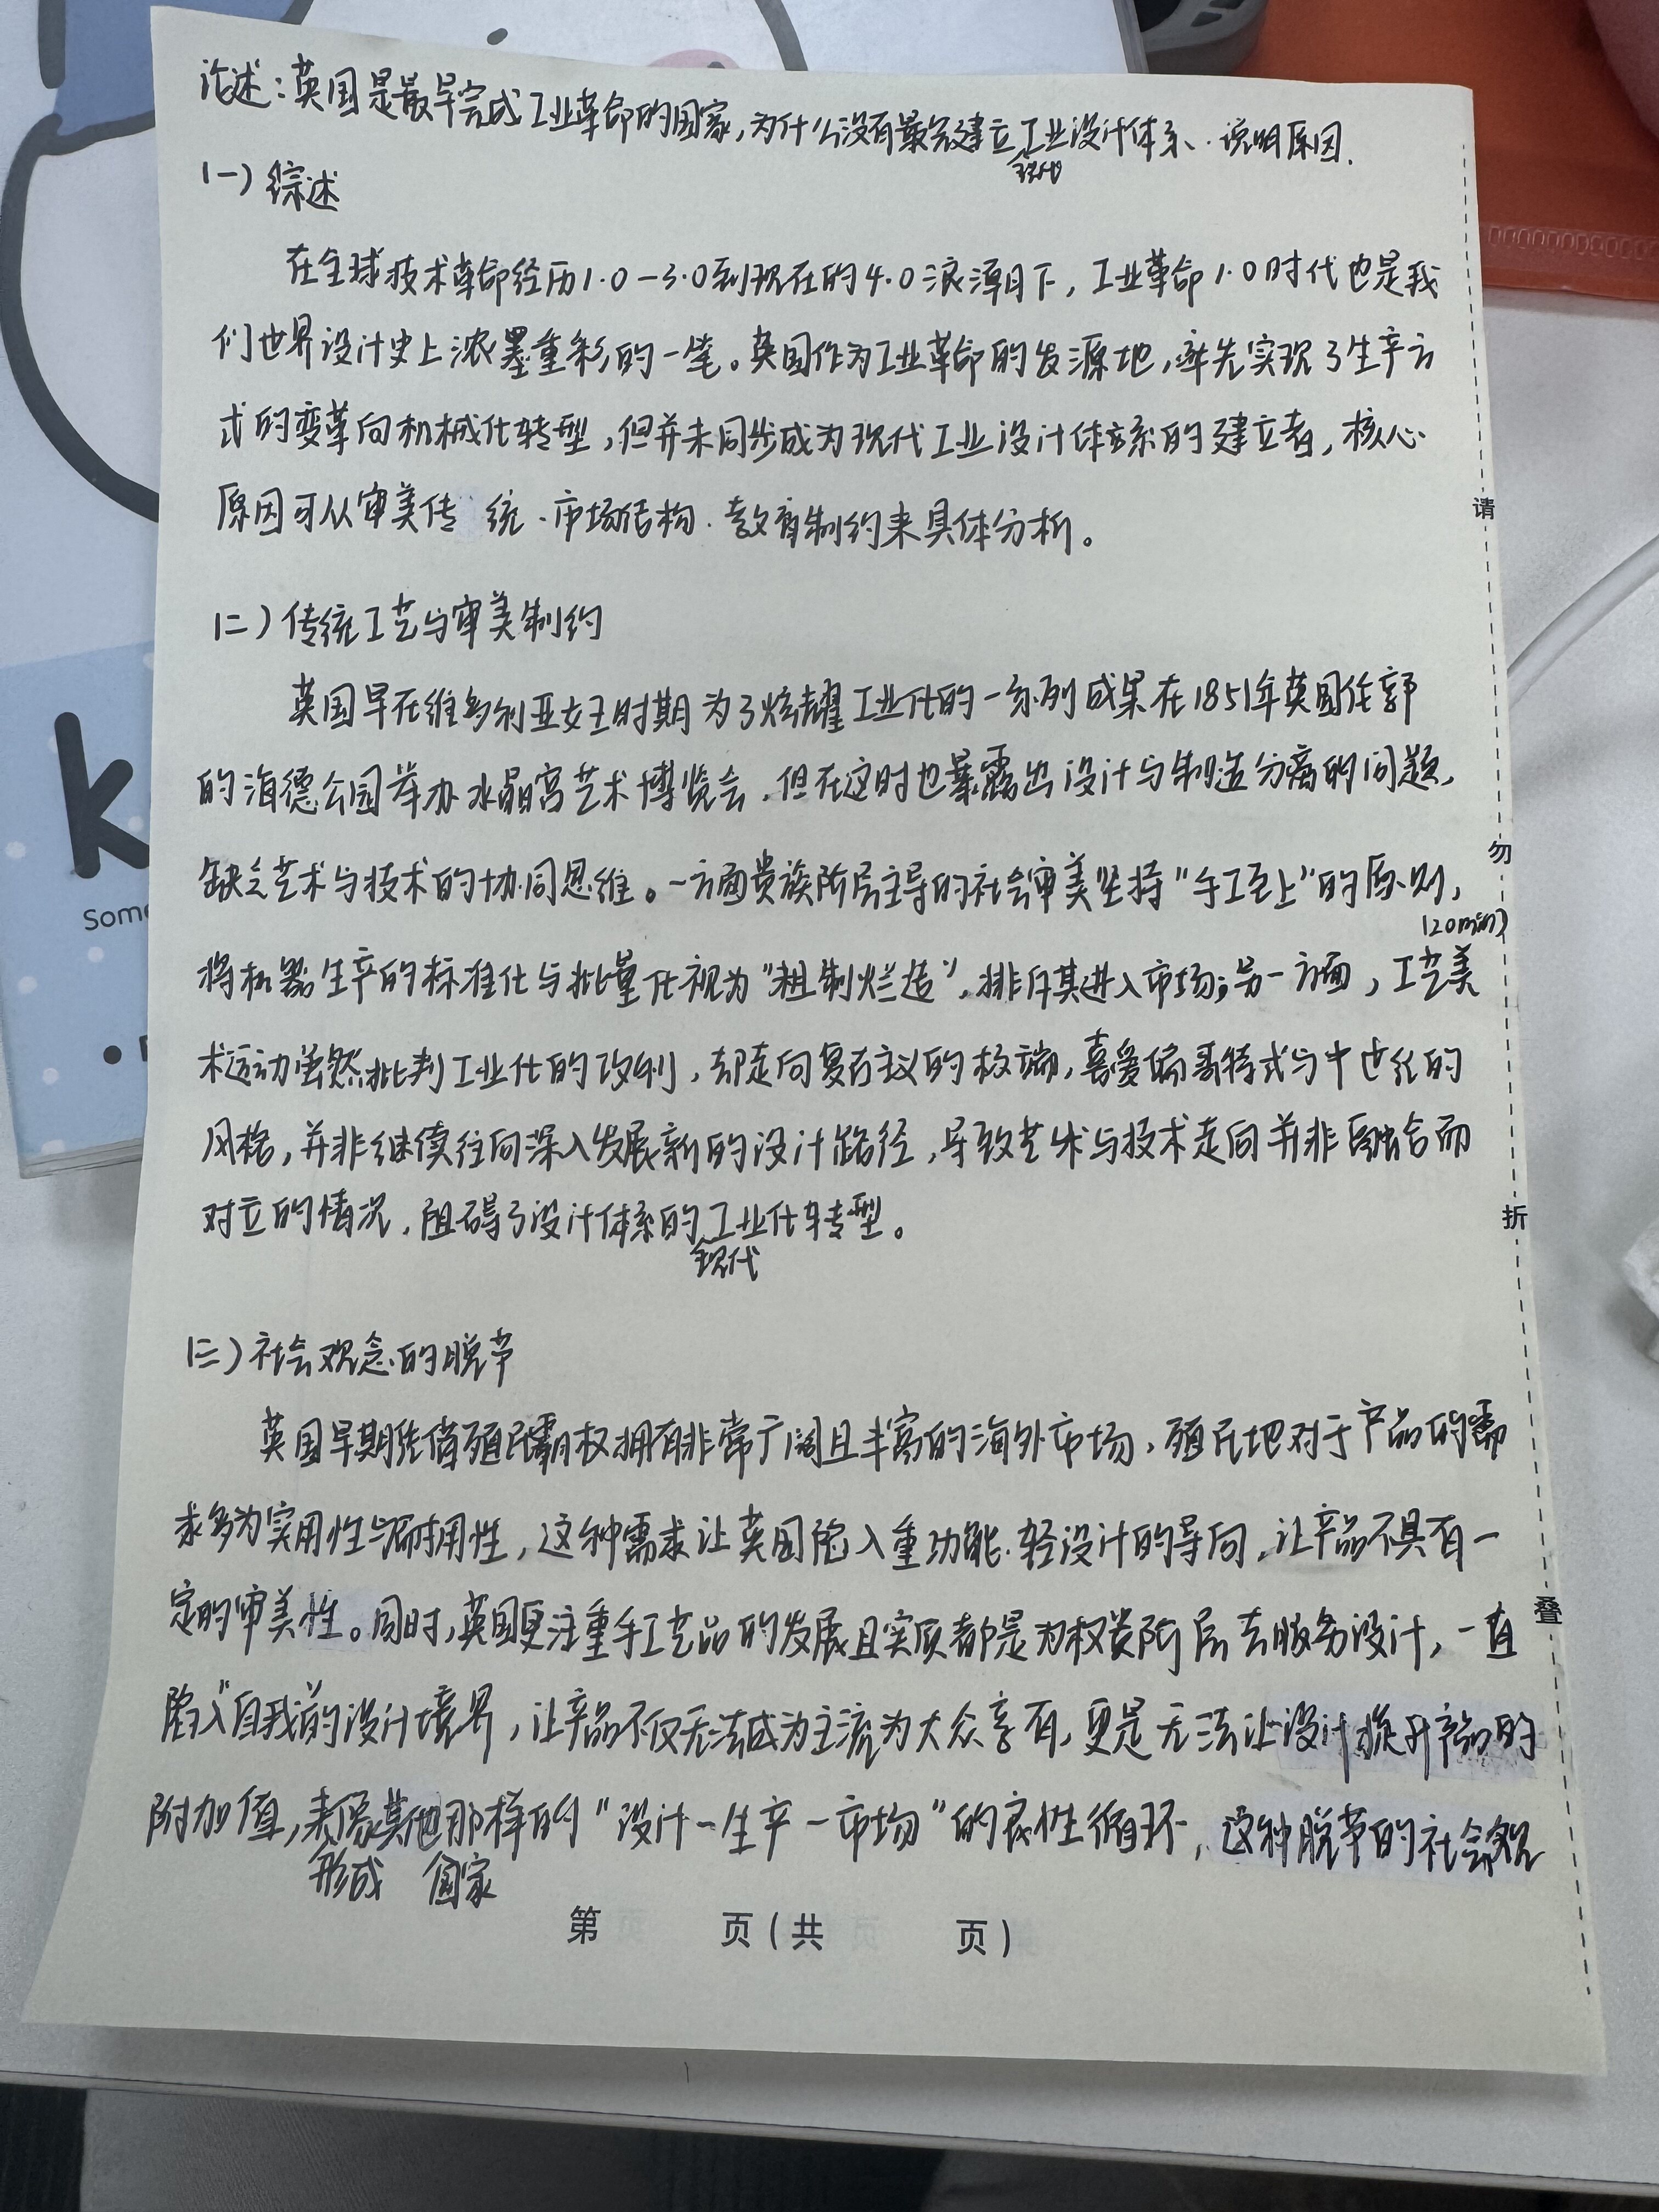 论述：英国是最早完成工业革命的国家，为什么没有最先建立工业设计体系、说明原因.
现代
(一) 综述
在全球技术革命经历1.0-3.0到现在的4.0浪潮下，工业革命1.0时代也是我
们世界设计史上浓墨重彩的一笔。英国作为工业革命的发源地，率先实现了生产方
式的变革向机械化转型，但并未同步成为现代工业设计体系的建立者，核心
原因可从审美传统、市场结构、教育制约来具体分析。
(二) 传统工艺与审美制约
英国早在维多利亚女王时期为了炫耀工业化的一系列成果在1851年英国伦郭
的海德公园举办水晶宫艺术博览会，但在这时也暴露出设计与制造分离的问题，
缺乏艺术与技术的协同思维。一方面贵族阶层主导的社会审美坚持“手工至上”的原则，
(20min)
将机器生产的标准化与批量化视为“粗制烂造”，排斥其进入市场；另一方面，工艺美
术运动虽然批判工业化的改制，却走向复古主义的极端，喜爱偏哥特式与中世纪的
风格，并非继续往向深入发展新的设计路径，导致艺术与技术走向并非融合而
对立的情况，阻碍了设计体系的工业化转型。
现代
(三) 社会观念的脱节
英国早期凭借殖民霸权拥有非常广阔且丰富的海外市场，殖民地对于产品的需
求多为实用性与耐用性，这种需求让英国陷入重功能、轻设计的导向，让产品不具有一
定的审美性。同时，英国更注重手工艺品的发展且实质都是为权贵阶层去服务设计，一直
陷入“自我”的设计境界，让产品不仅无法成为主流为大众享有，更是无法让设计提升产品的
附加值，来像其他那样的“设计-生产-市场”的良性循环，这种脱节的社会观
形成 国家
第 页(共 页)
请
勿
折
叠
k
Some